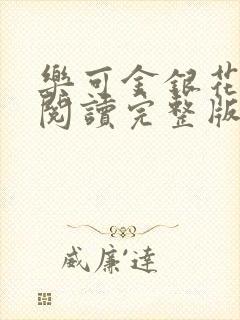 樂可金銀花
閱讀完整版
威廉達